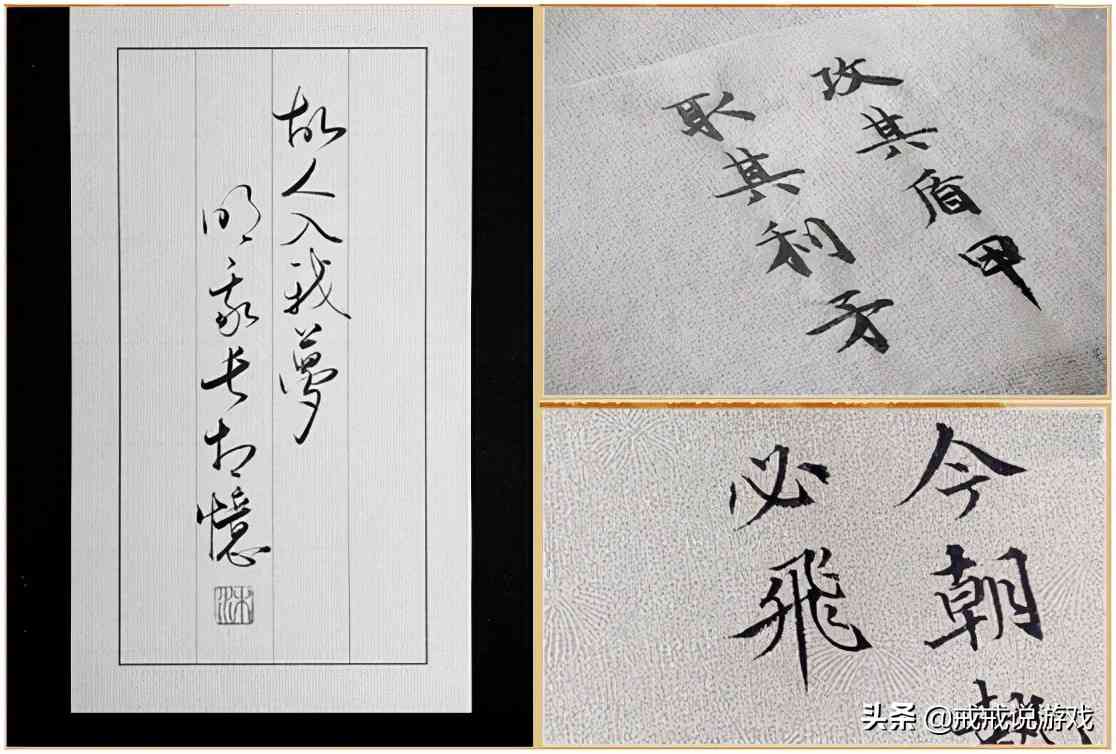 故人入我夢
明我長相憶
攻其盾甲
取其利矛
今朝
必飛
头条 @戒戒说游戏